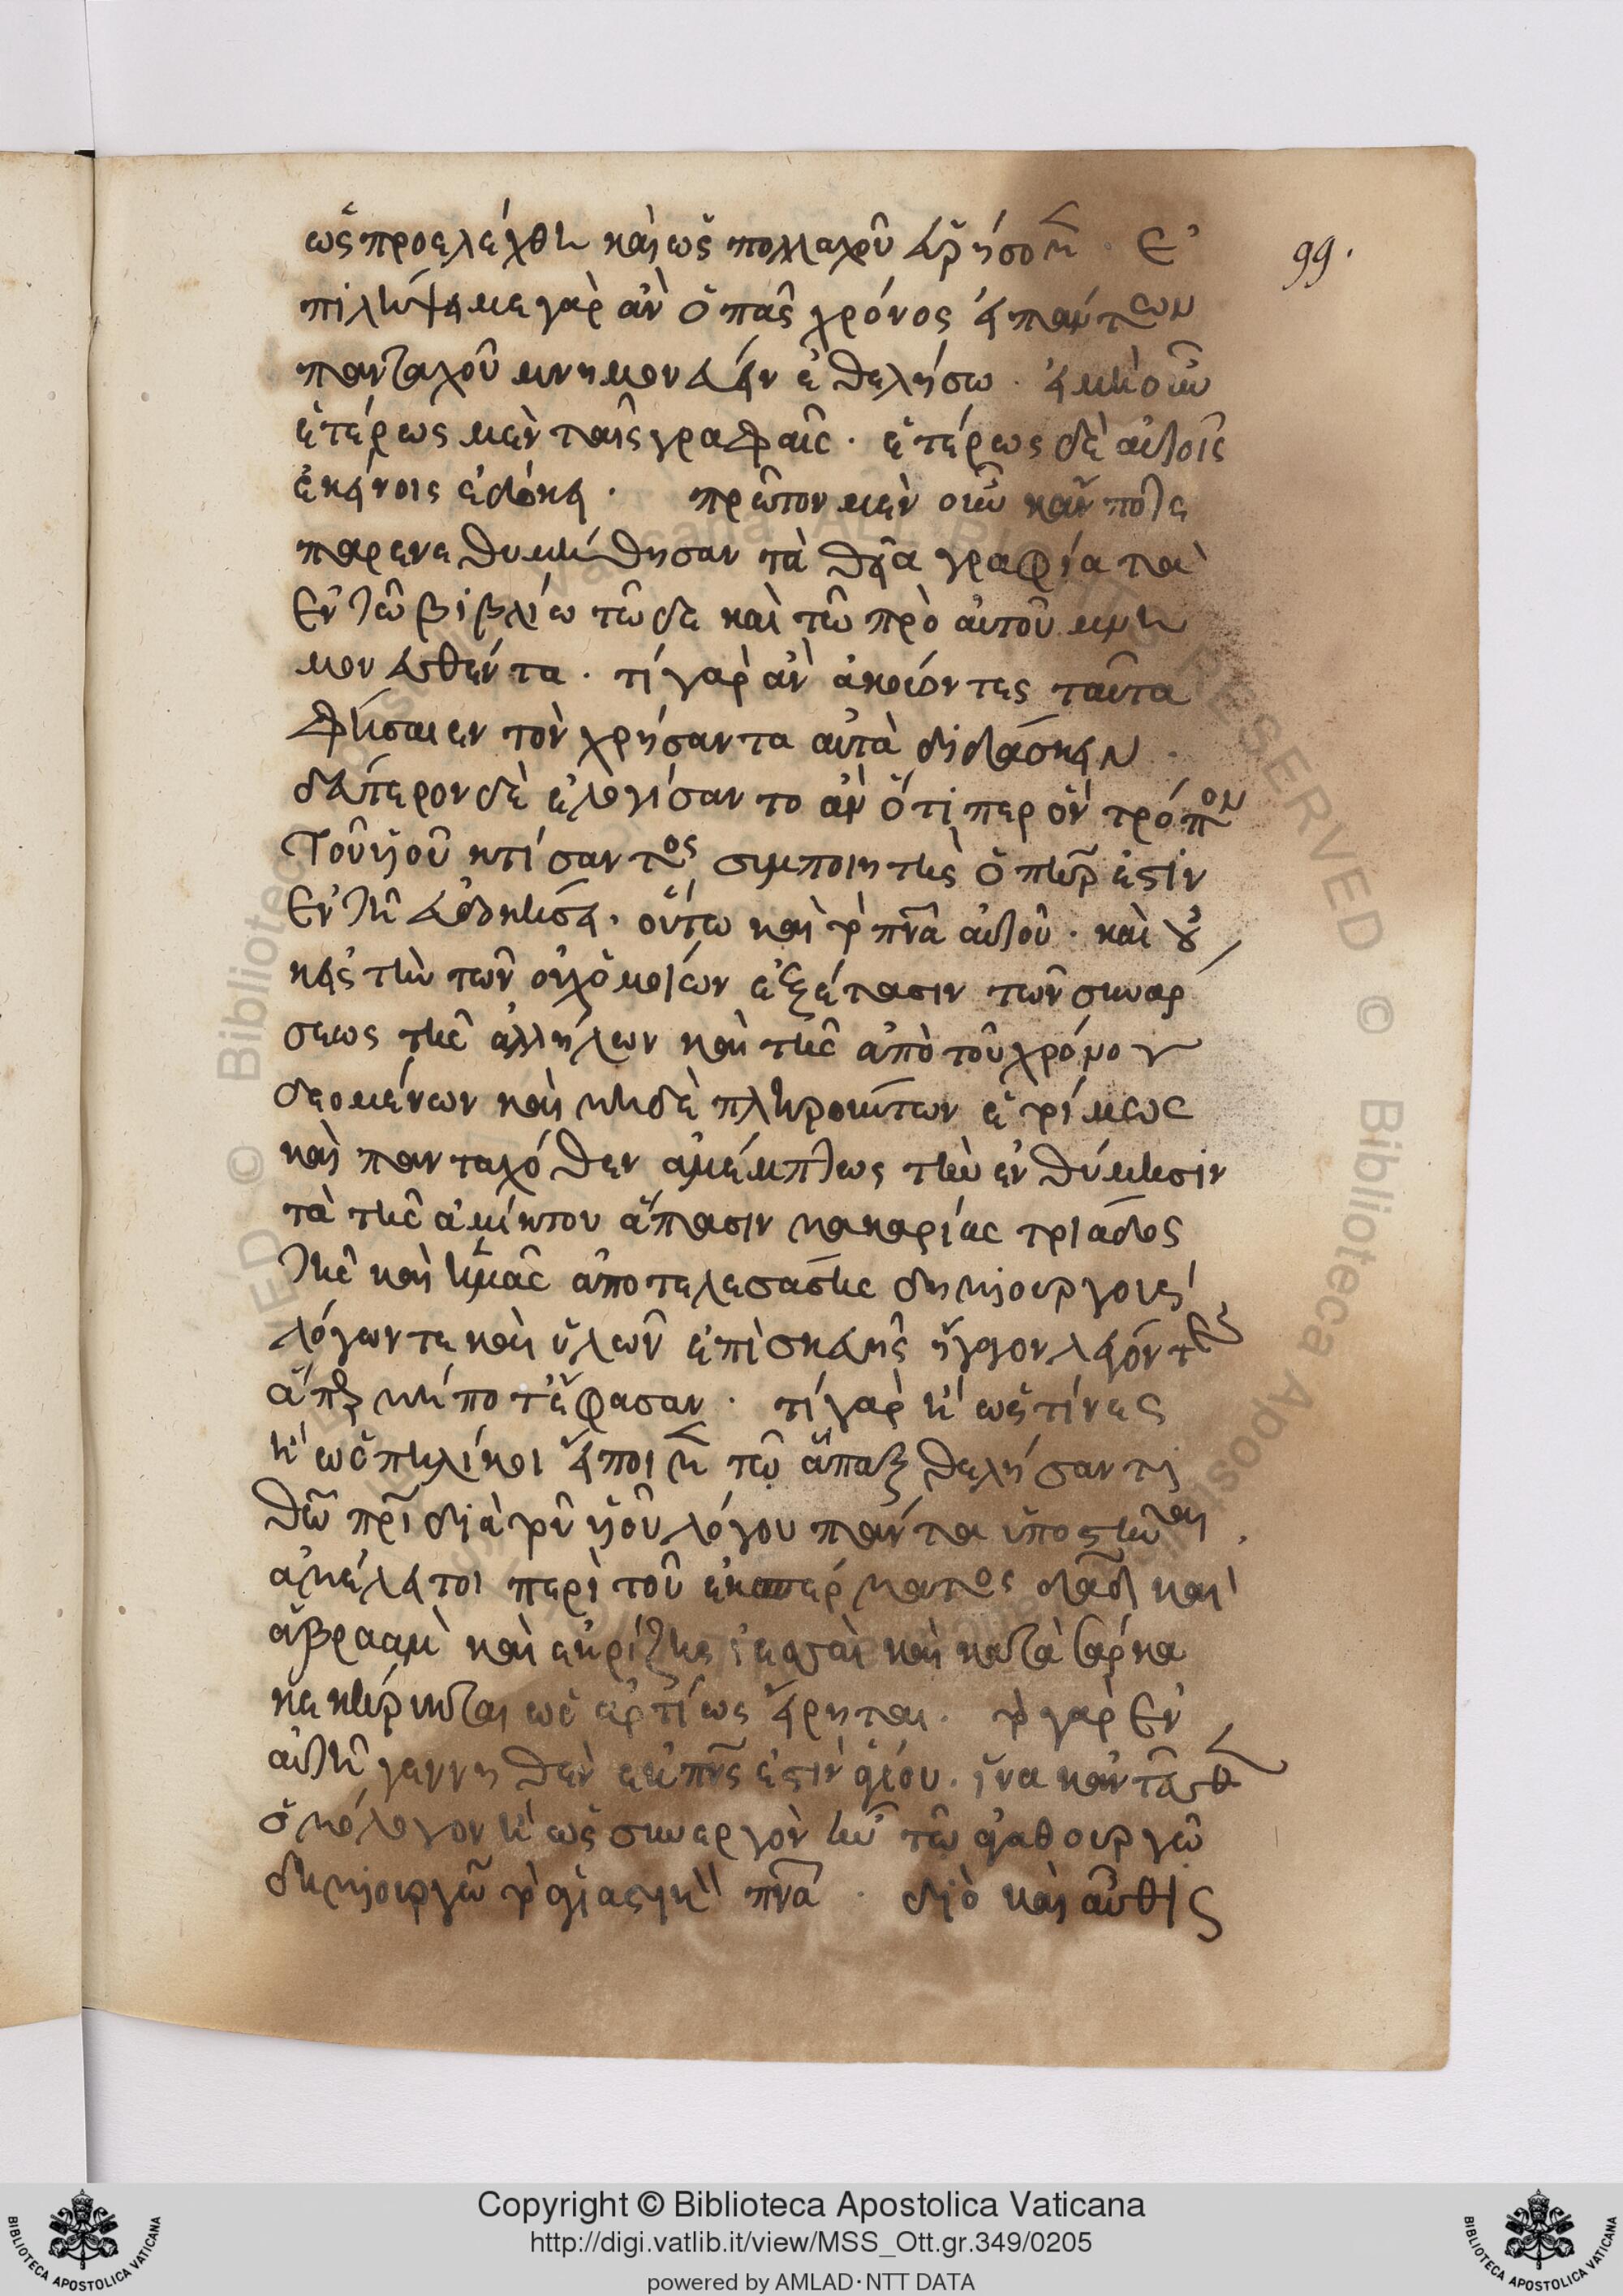 ὡς προελέχθη καὶ ὡς πολλαχοῦ εὑρήσομεν . Ἐ
πιλήψει με γὰρ ἂν ὁ πᾶς χρόνος εἰ πάντων
πανταχοῦ μνημονεύειν ἐθελήσω . εἰ μὴ οὖν
ἑτέρως μὲν ταῖς γραφαῖς . ἑτέρως δὲ αὐτοῖς
ἐκείνοις ἐδόκει . πρῶτον μὲν οὖν κἄν ποτε
παρενεθυμήθησαν τὰ θεῖα γραφία τὰ
ἐν τῷ βιβλίῳ τῷδε καὶ τῷ πρὸ αὐτοῦ μνη
μονευθέντα . τί γὰρ ἂν ἀκούοντες ταῦτα
φήσαιεν τὸν χρήσαντα αὐτὰ διδάσκειν .
δεύτερον δὲ ἐλογίσαντο ἂν ὅτιπερ ὃν τρόπον
τοῦ υἱοῦ κτίσαντος συμποιητὴς ὁ πατήρ ἐστιν
ἐν τῇ εὐδοκήσει . οὕτω καὶ τὸ πνα αὐτοῦ . καὶ οὐ
κ εἰς τὴν τῶν ὀχλομοιῶν ἐξέτασιν τῶν συνάρ
σεως τῆς ἀλλήλων καὶ τῆς ἀπὸ τοῦ χρόνου
δεομένων καὶ μηδὲ πληρούντων ἑτοίμως
καὶ πανταχόθεν ἀμέμπτως τὴν ἐνθύμησιν
τὰ τῆς ἀμίκτου ἅπασιν μακαρίας τριάδος
τῆς καὶ ἡμᾶς ἀποτελεσάσης δημιουργούς
λόγων τε καὶ ὑλῶν ἐπισκευῆς ἥττον λαόντες
ἅπερ μήποτ' ἔφασαν . τί γὰρ ἢ ὥς τινες
ἢ ὡς πηλίκοι εἴποιμεν τῷ ἅπαξ θελήσαντι
θω πρι διὰ τοῦ υἱοῦ λόγου πάντα ὑποστῆναι .
ἀμέλει τοι περὶ τοῦ ἐκ σπέρματος δαδ καὶ
ἀβραὰμ καὶ ἐκ ῥίζης ἰεσσαὶ καὶ κατὰ σάρκα
κεκήρυκται ὡς ἀρτίως εἴρηται . τὸ γὰρ ἐν
αὐτῇ γεννηθὲν ἐκ πνς ἐστιν ἁγίου . ἵνα κἀνταῦθα
ὁμόλογον ἢ ὡς συνεργὸν ἦν τῷ ἀγαθουργῷ
δημιουργῷ τὸ ἁγιαστικὸν πνα . διὸ καὶ αὖθις
99.
Copyright © Biblioteca Apostolica Vaticana
http://digi.vatlib.it/view/MSS_Ott.gr.349/0205
powered by AMLAD·NTT DATA
BIBLIOTECA APOSTOLICA VATICANA
BIBLIOTECA APOSTOLICA VATICANA